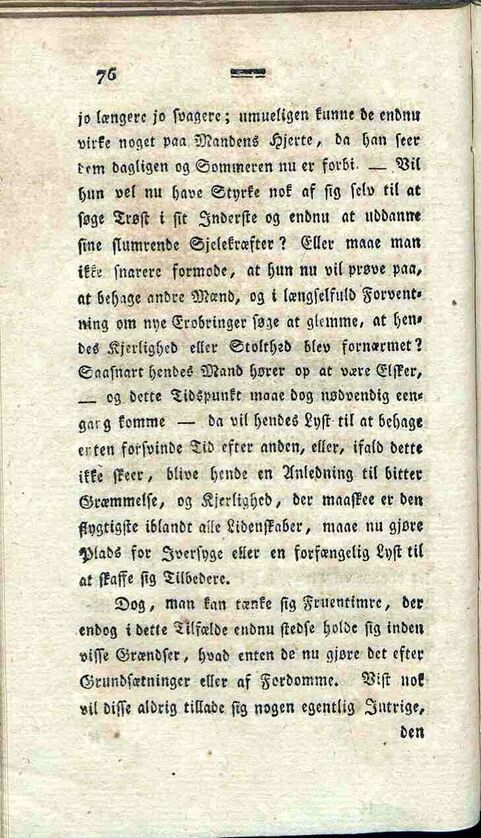 76
jo længere jo svagere; umueligen kunne de endnu
virke noget paa Mandens Hjerte, da han seer
dem dagligen og Sommeren nu er forbi. — Vil
hun vel nu have Styrke nok af sig selv til at
søge Trøst i sit Inderste og endnu at uddanne
sine slumrende Sjelekræfter? Eller maae man
ikke snarere formode, at hun nu vil prøve paa,
at behage andre Mænd, og i længselfuld Forvent-
ning om nye Erobringer søge at glemme, at hen-
des Kjerlighed eller Stolthed blev fornærmet?
Saasnart hendes Mand hører op at være Elsker,
— og dette Tidspunkt maae dog nødvendig een-
gang komme — da vil hendes Lyst til at behage
enten forsvinde Tid efter anden, eller, ifald dette
ikke skeer, blive hende en Anledning til bitter
Græmmelse, og Kjerlighed, der maaskee er den
flygtigste iblandt alle Lidenskaber, maae nu gjøre
Plads for Iversyge eller en forfængelig Lyst til
at skaffe sig Tilbedere.
Dog, man kan tænke sig Fruentimre, der
endog i dette Tilfælde endnu stedse holde sig inden
visse Grændser, hvad enten de nu gjøre det efter
Grundsætninger eller af Fordomme. Vist nok
vil disse aldrig tillade sig nogen egentlig Intrige,
den